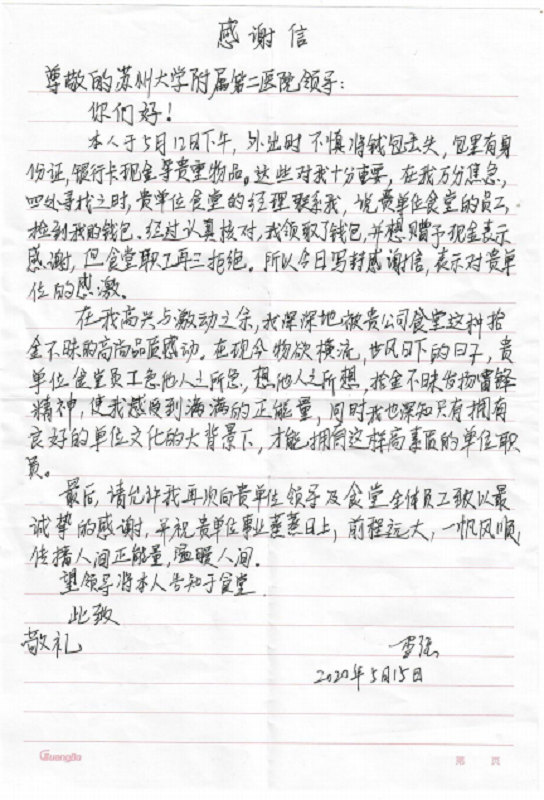 感谢信
尊敬的苏州大学附属第二医院领导:
你们好!
本人于5月12日下午,外出时不慎将钱包丢失,包里有身
份证,银行卡现金等贵重物品。这些对我十分重要,在我万分焦急,
四处寻找之时,贵单位食堂的经理联系我,说贵单位食堂的员工,
捡到我的钱包.经过认真核对,我领取了钱包,并想赠予现金表示
感谢,但食堂职工再三拒绝。所以今日写封感谢信,表示对贵单
位的感激。
在我高兴与激动之余,我深深地被贵公司食堂这种拾
金不昧的高尚品质感动.在现今物欲横流,世风日下的日子,贵
单位食堂员工急他人之所急,想他人之所想,拾金不昧发扬雷锋
精神,使我感受到满满的正能量,同时我也深知只有拥有
良好的单位文化的大背景下,才能拥有这样高素质的单位职
员。
最后,请允许我再次向贵单位领导及食堂全体员工致以最
诚挚的感谢,并祝贵单位事业蒸蒸日上,前程远大,一帆风顺,
传播人间正能量,温暖人间.
望领导将本人告知于食堂.
此致
敬礼
2020年5月15日
Guangbo
第 页